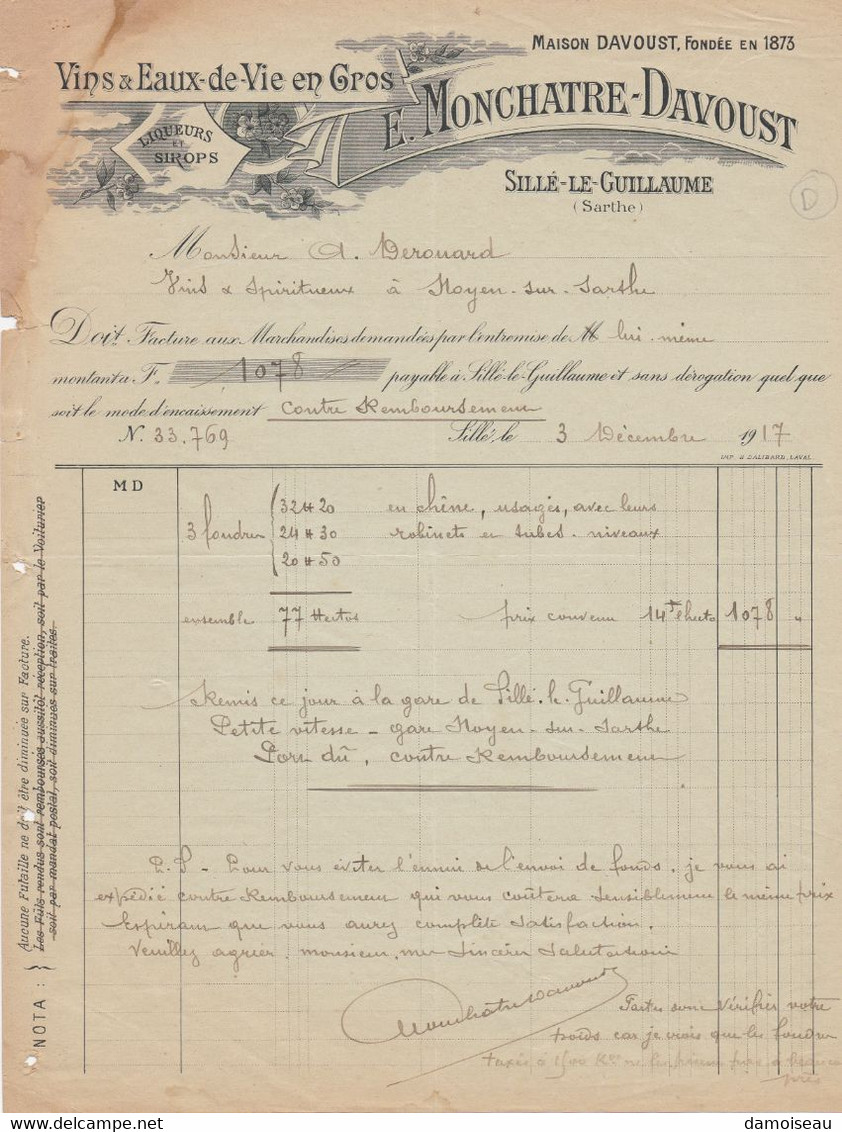 MAISON DAVOUST, FONDÉE EN 1873
Vins & Eaux-de-Vie en Gros
E. MONCHATRE-DAVOUST
LIQUEURS
ET
SIROPS
SILLÉ-LE-GUILLAUME
(Sarthe)
D
Monsieur A. Derouard
Vins & Spiritueux à Noyen-sur-Sarthe
Doit Facture aux Marchandises demandées par l'entremise de M lui-même
montant à F. 1078 payable à Sillé-le-Guillaume et sans dérogation quel que
soit le mode d'encaissement contre Remboursement
N. 33.769 Sillé, le 3 Décembre 1917
IMP. G. DALIBARD, LAVAL
MD
32 H 20 en chêne, usagés, avec leurs
3 foudres 24 H 30 robinets et tubes-niveaux
20 H 50
ensemble 77 Hectos prix convenu 14F l'hecto 1078 "
Remis ce jour à la gare de Sillé-le-Guillaume
Petite vitesse - gare Noyen-sur-Sarthe
Port dû, contre Remboursement
P.S - Pour vous éviter l'ennui de l'envoi de fonds, je vous ai
expédié contre Remboursement qui vous coûtera sensiblement le même prix
Espérant que vous aurez complète satisfaction.
Veuillez agréer, monsieur, mes sincères salutations
Monchatre Davoust
Faites donc vérifier votre
poids car je crois que les foudres
taxés à 1500 Kos ne
près
NOTA :
Aucune Futaille ne doit être diminuée sur Facture.
Les Fûts rendus sont remboursés aussitôt réception, soit par le Voiturier
soit par mandat postal, soit diminués sur traites.
damoiseau